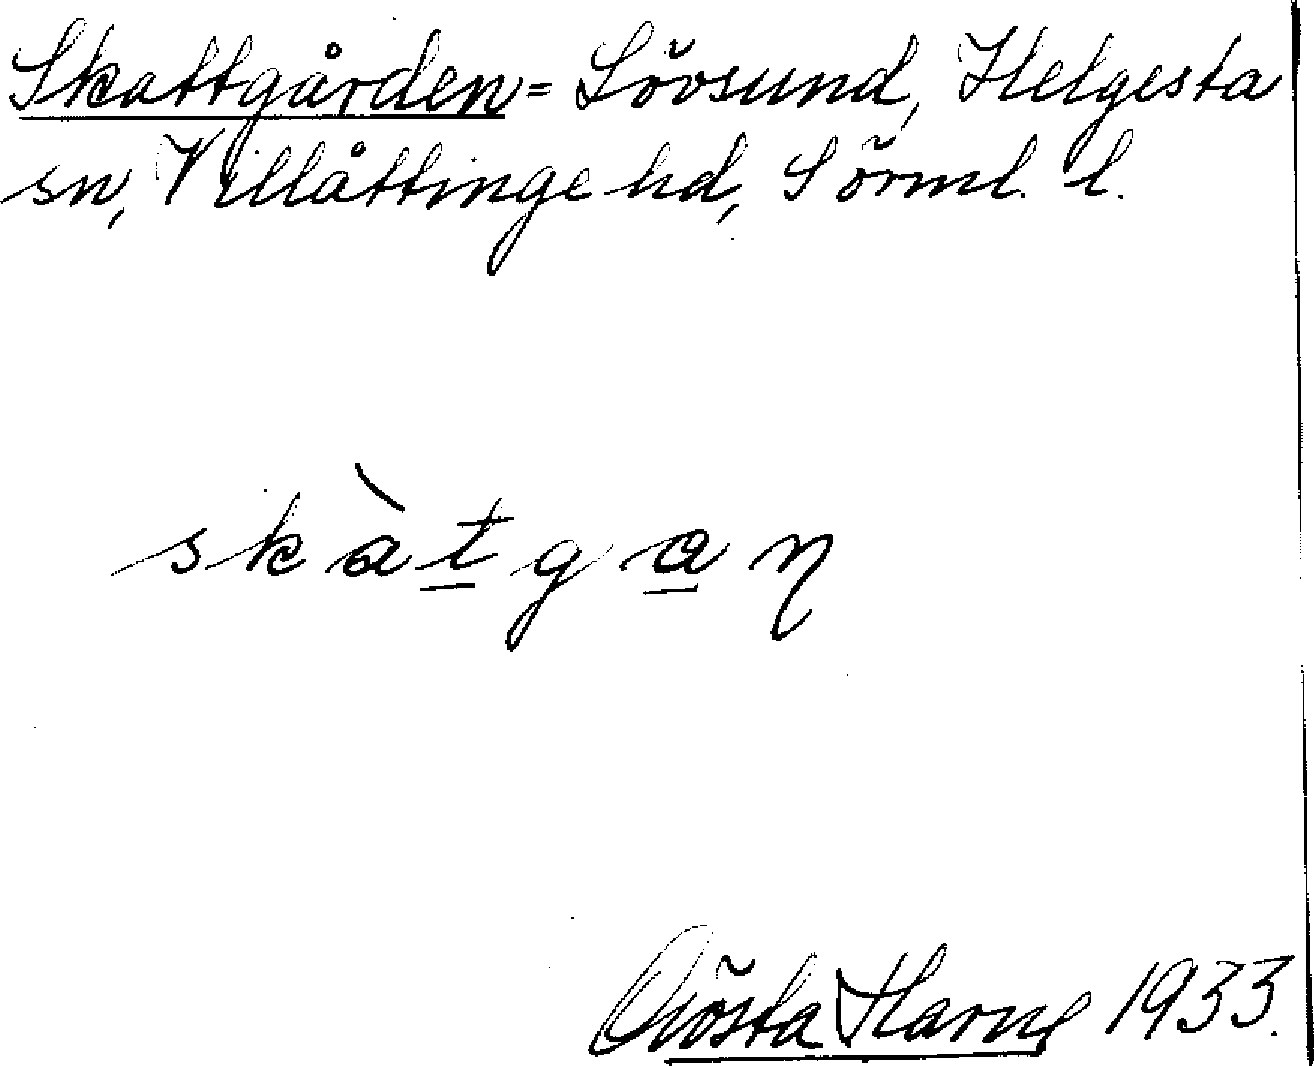 Skattgården = Lövsund, Helgesta
sn, Villåttinge hd, Sörml. l.
skàtgaꞑ
Gösta Harne 1933.